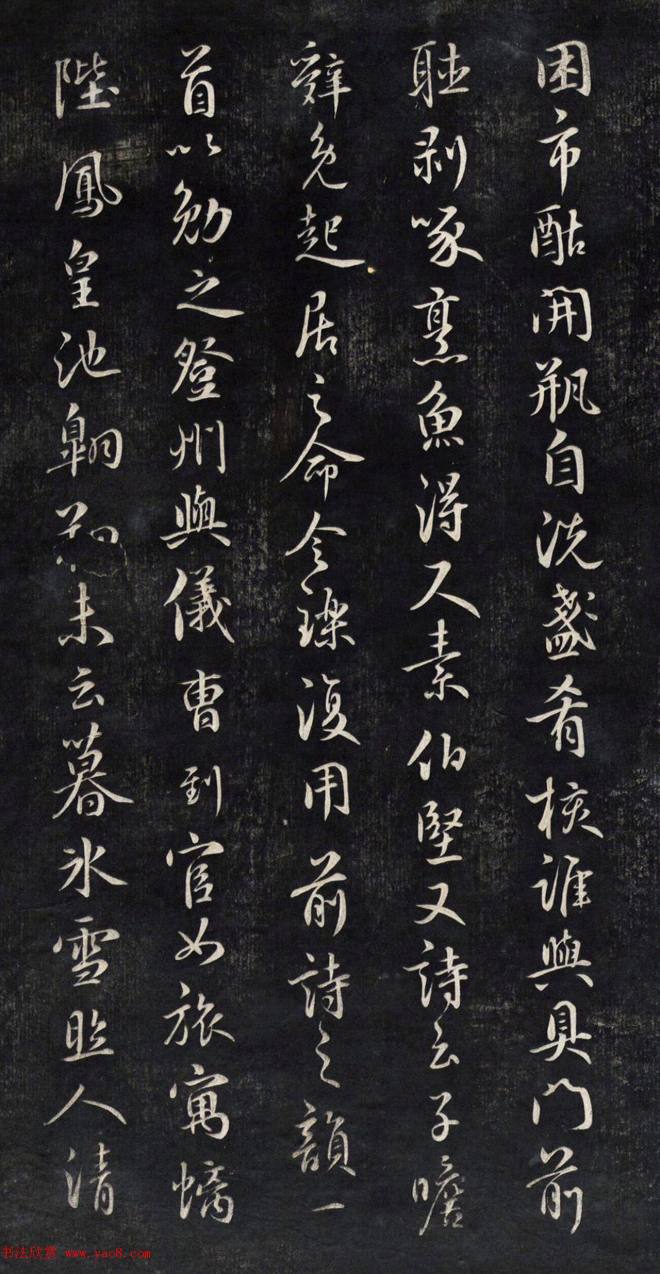 困市酤開瓶自洗盞肴核誰與具門前
聽剥啄烹魚得尺素伯堅又詩云子瞻
辭免起居之命令璨復用前詩之韻一
首以勉之登州與儀曹到官如旅寓螭
陛鳳皇池翱翔未云暮冰雪照人清
书法欣赏 www.yac8.com